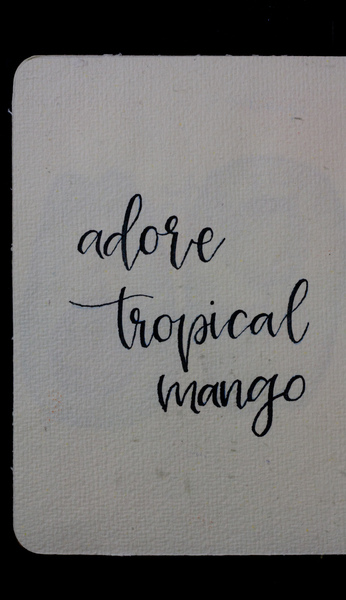 adore
tropical
mango